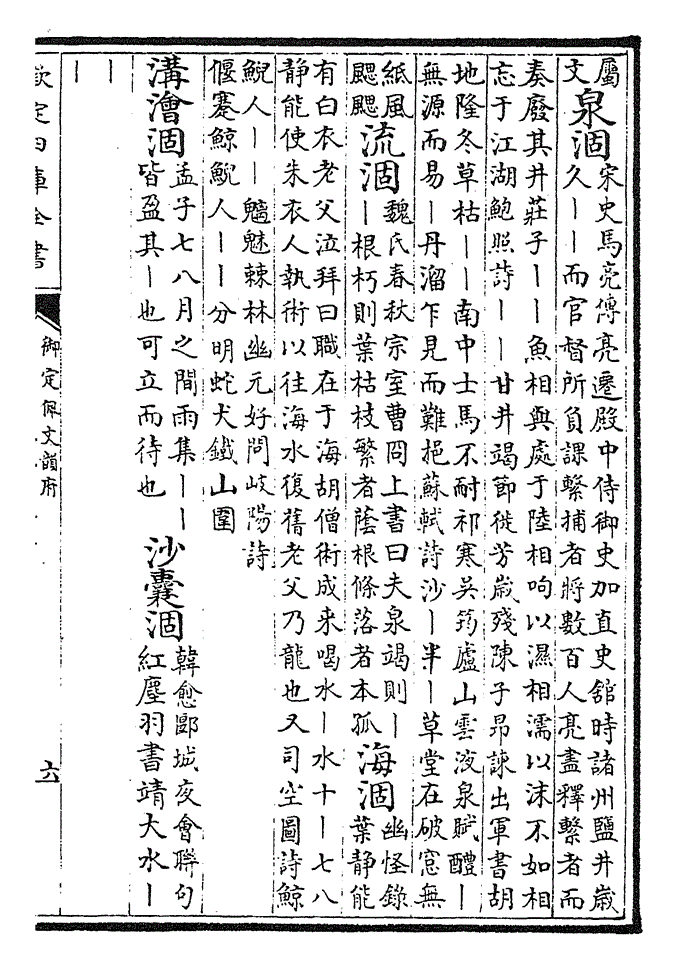 屬
文
泉涸
宋史馬亮傳亮遷殿中侍御史加直史館時諸州鹽井歳
久丨丨而官督所負課繫捕者將數百人亮盡釋繫者而
奏廢其井莊子丨丨魚相與處于陸相呴以濕相濡以沫不如相
忘于江湖鮑照詩丨丨甘井竭節徙芳歳殘陳子昂諫出軍書胡
地隆冬草枯丨丨南中士馬不耐祁寒吳筠廬山雲液泉賦醴丨
無源而易丨丹溜乍見而難挹蘇軾詩沙丨半丨草堂在破窓無
紙風
颼颼
流涸
魏氏春秋宗室曹冏上書曰夫泉竭則丨
丨根朽則葉枯枝繁者蔭根條落者本孤
海涸
幽怪錄
葉静能
有白衣老父泣拜曰職在于海胡僧術成来喝水丨水十丨七八
静能使朱衣人執術以往海水復舊老父乃龍也又司空圖詩鯨
鯢人丨丨魑魅棘林幽元好問岐陽詩
偃蹇鯨鯢人丨丨分明蛇犬鐵山圍
溝澮涸
孟子七八月之間雨集丨丨
皆盈其丨也可立而待也
沙囊涸
韓愈郾城夜會聯句
紅塵羽書靖大水丨
丨
丨
欽定四庫全書
御定佩文韻府
六